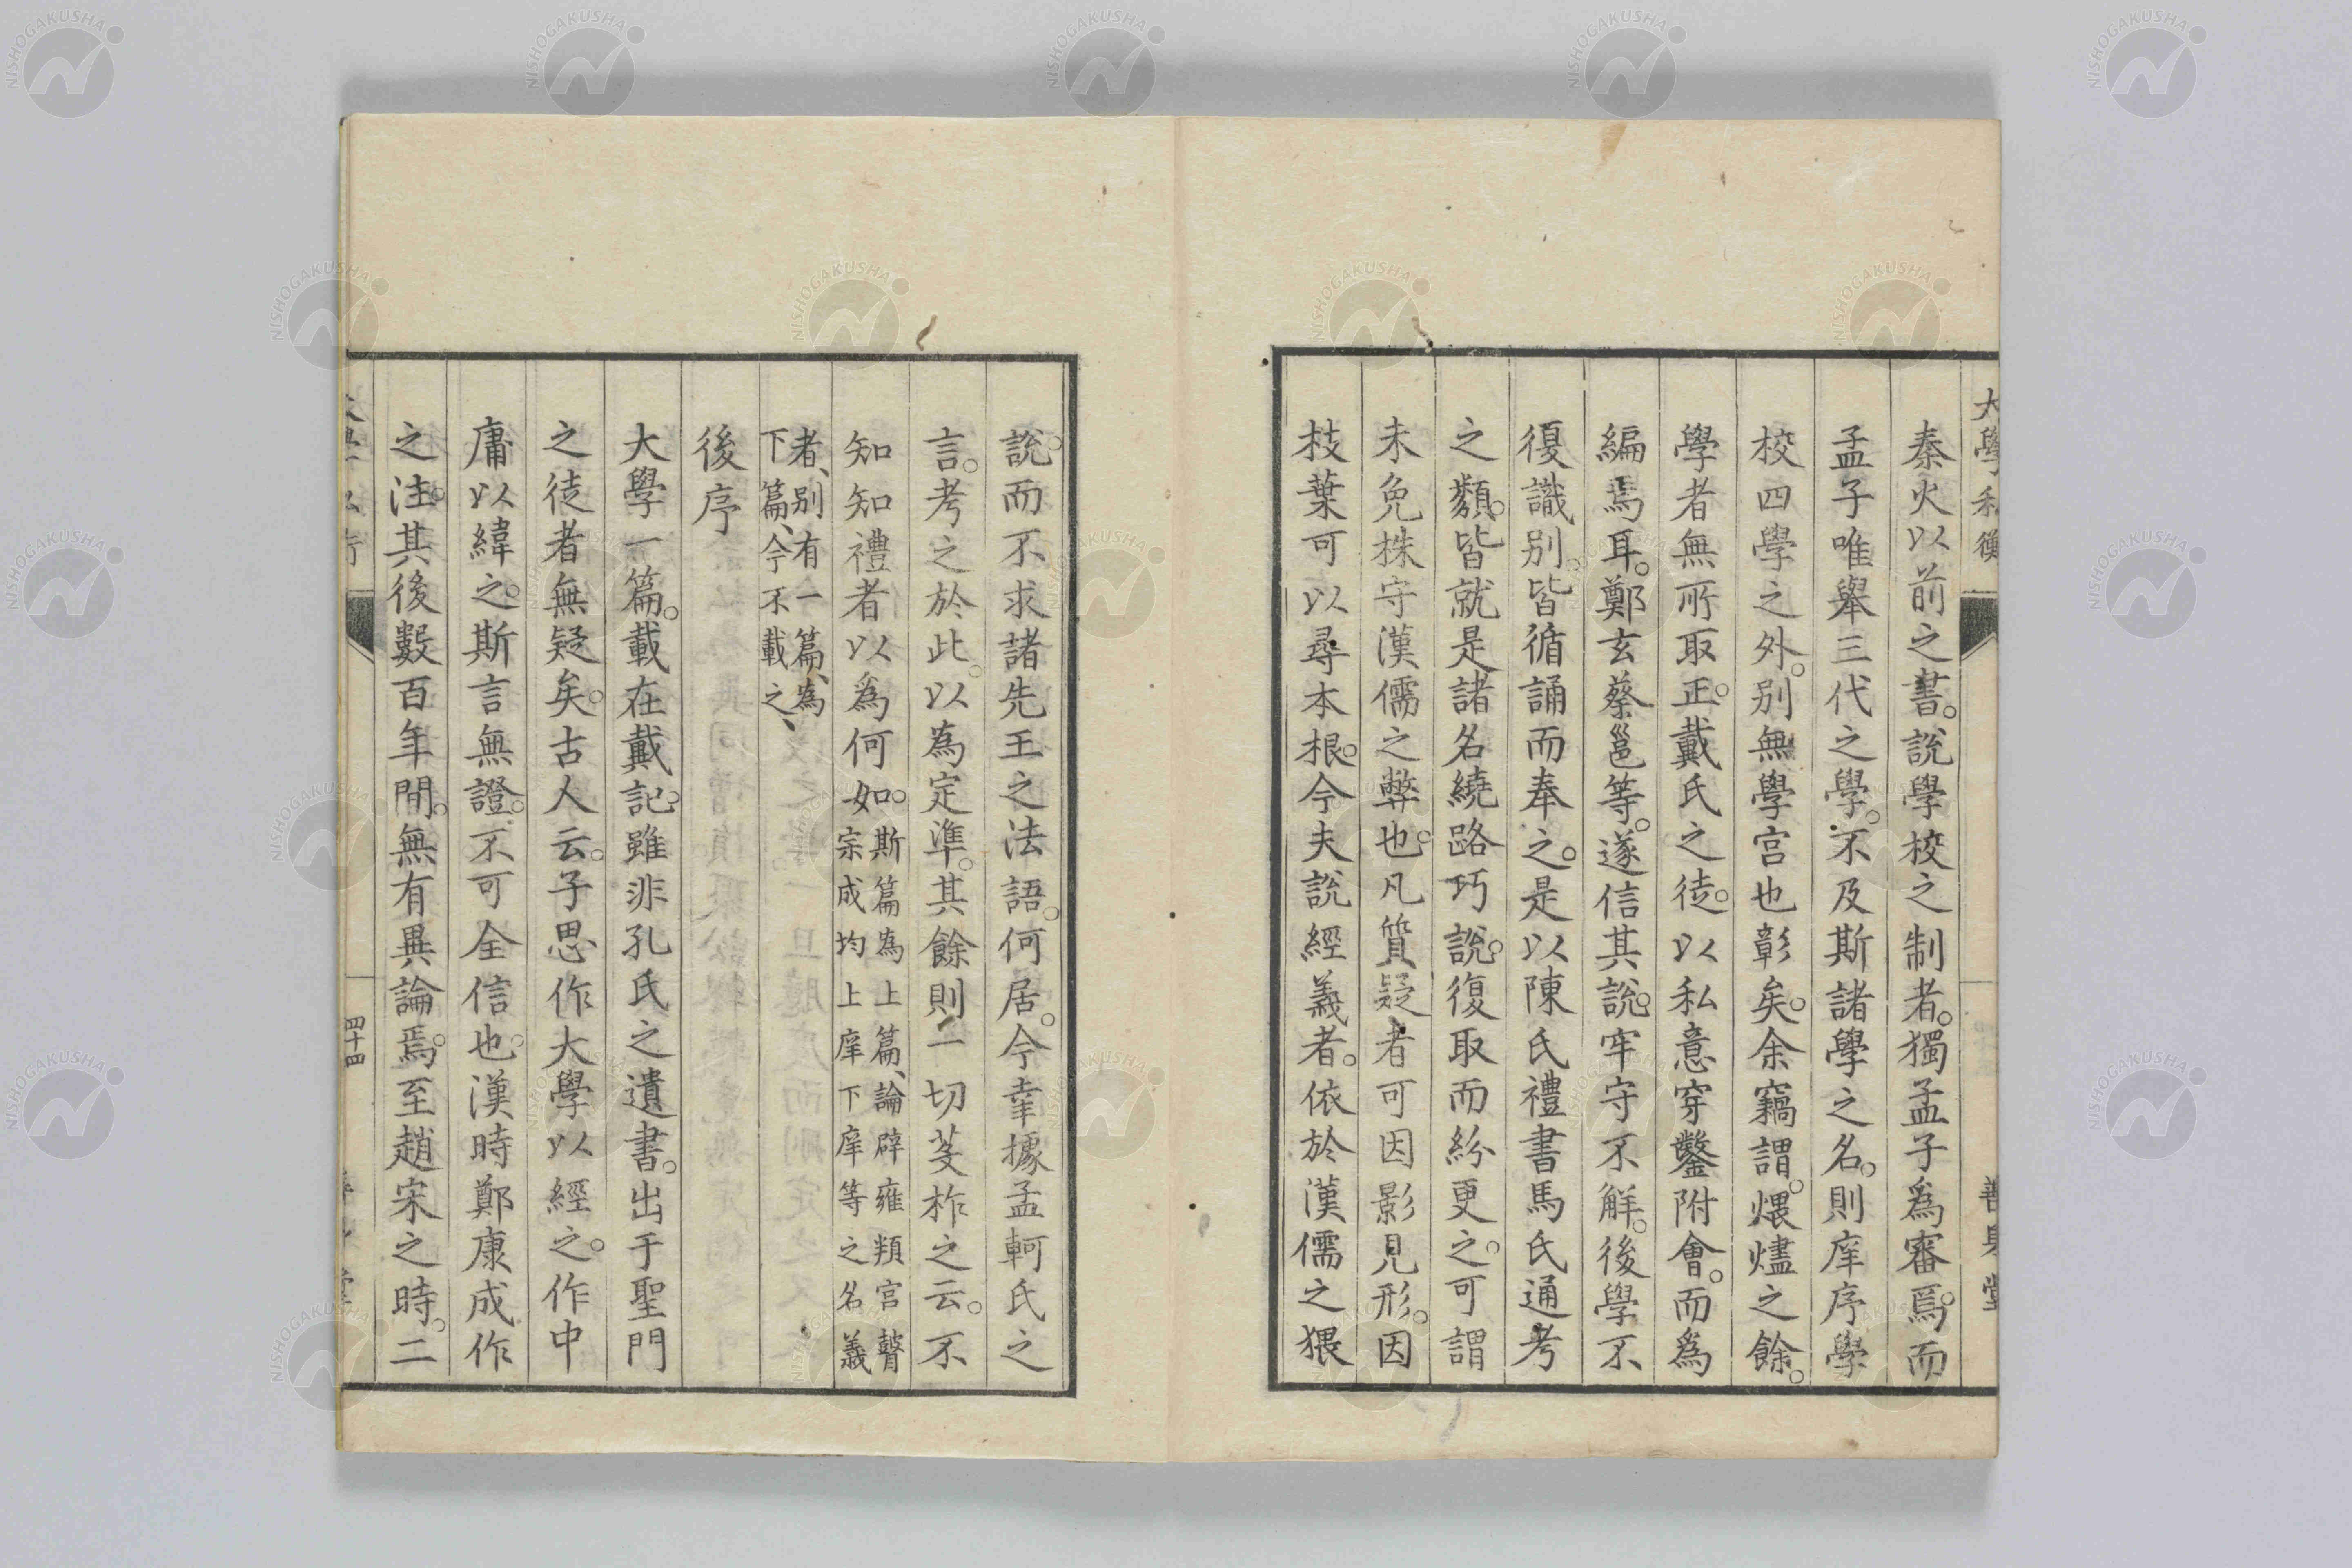 大學私衡
善身堂
秦火以前之書。說學校之制者。獨孟子爲審焉。而
孟子唯舉三代之學。不及斯諸學之名。則庠序學
校四學之外。別無學宮也彰矣。余竊謂。煨燼之餘。
學者無所取正。戴氏之徒。以私意穿鑿附會。而爲
編焉耳。鄭玄蔡邕等。遂信其說。牢守不解。後學不
復識別。皆循誦而奉之。是以陳氏禮書馬氏通考
之類。皆就是諸名繞路巧說。復取而紛更之。可謂
未免株守漢儒之弊也。凡質疑者可因影見形。因
枝葉可以尋本根。今夫說經義者。依於漢儒之猥
說。而不求諸先王之法語。何居。今幸據孟軻氏之
言。考之於此。以為定準。其餘則一切芟柞之云。不
知知禮者以爲何如。斯篇為上篇、論辟雍頖宮瞽
宗成均上庠下庠等之名義
者、別有一篇、為
下篇、今不載之、
後序
大學一篇。載在戴記。雖非孔氏之遺書。出于聖門
之徒者無疑矣。古人云。子思作大學以經之。作中
庸以緯之。斯言無證。不可全信也。漢時鄭康成作
之注。其後數百年間。無有異論焉。至趙宋之時。二
四十四